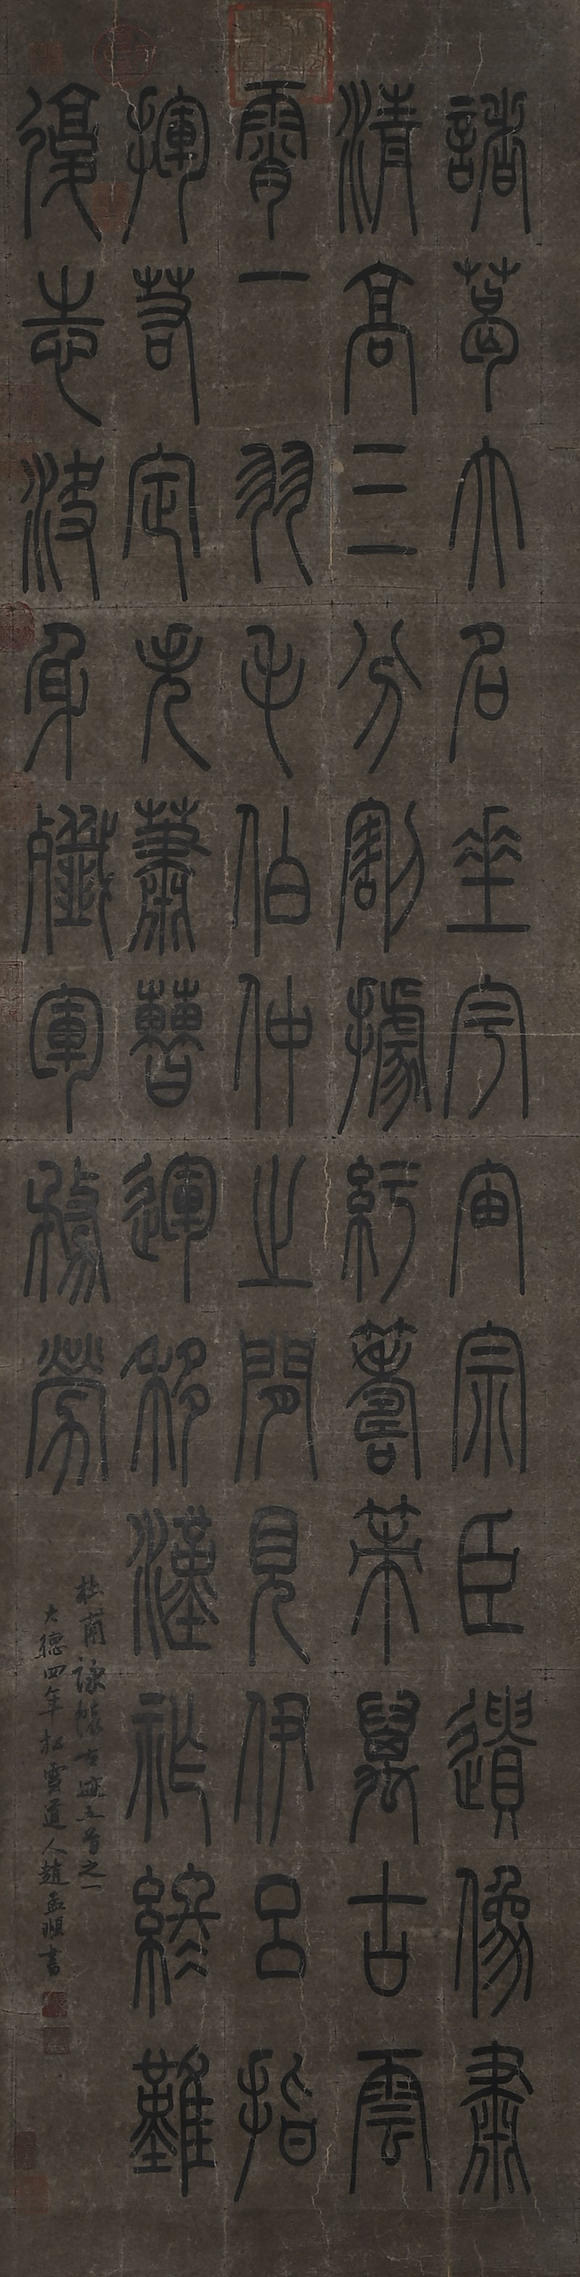 諸葛大名垂宇宙宗臣遺像肅
清高三分割據紆籌策萬古雲
霄一羽毛伯仲之間見伊呂指
揮若定失蕭曹運移漢祚終難
復志決身殲軍務勞
杜甫詠懷古迹五首之一
大德四年松雪道人趙孟頫書